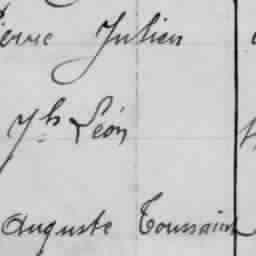 ierre Julien
Jh Léon
Auguste Toussaint